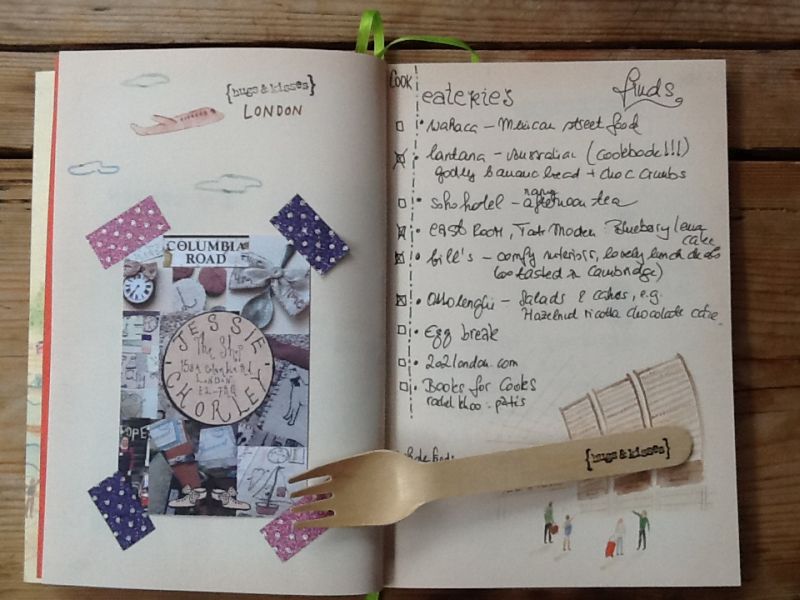 {hugs & kisses}
LONDON
COLUMBIA
ROAD
JESSE
The Shop
158A
LONDON
E2-7RG
CHORLEY
COOK
eateries
finds
• wahaca – Mexican street food
• lantana – Australian (cookbook!!!)
banana bread + choc crumbs
• soho hotel – afternoon tea
• East Room, Tate Modern Blueberry
cake
• bill's – comfy interiors, lovely lunch
too tasted in Cambridge)
• Ottolenghi – salads & cakes, e.g.
Hazelnut ricotta chocolate cake
• Egg break
• 202london.com
• Books for Cooks
rachel khoo
{hugs & kisses}